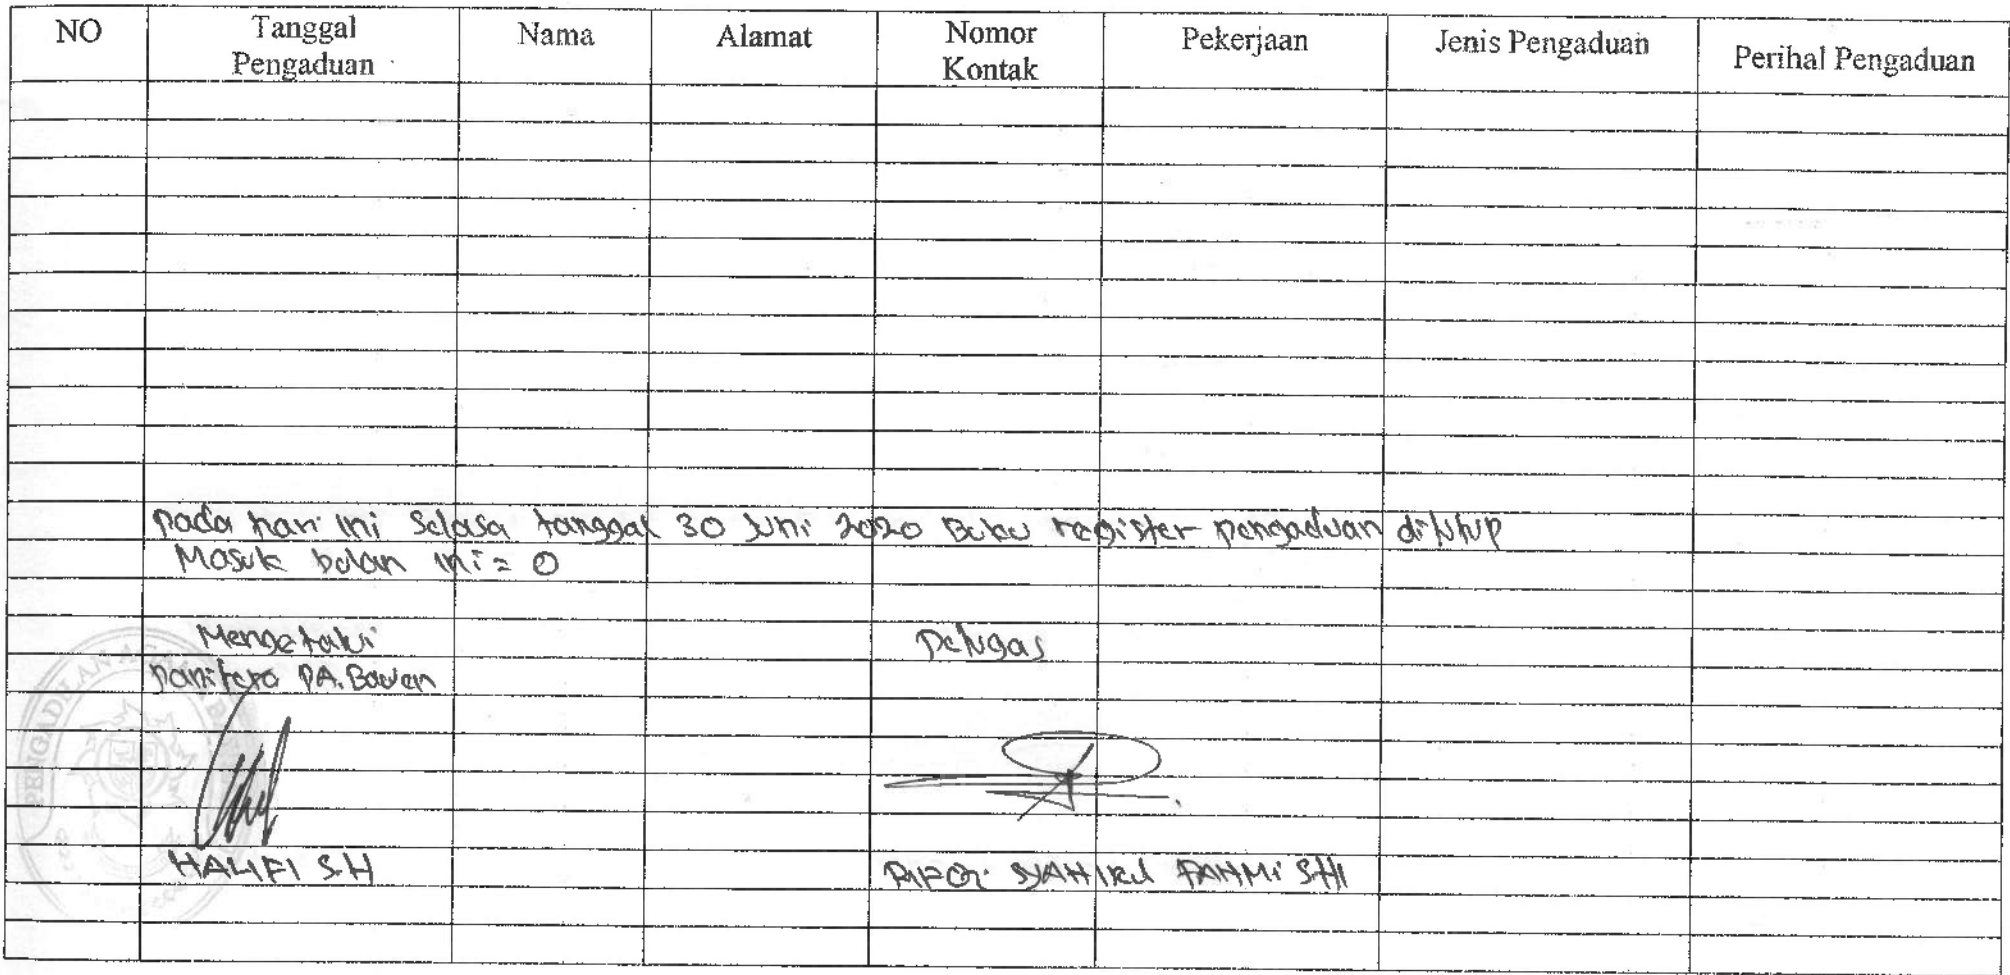 NO Tanggal Pengaduan Nama Alamat Nomor Kontak Pekerjaan Jenis Pengaduan Perihal Pengaduan
pada hari ini Selasa tanggal 30 Juni 2020 Buku register pengaduan ditutup
Masuk bulan ini = 0
Mengetahui Petugas
panitera PA. Bawean
PENGADILAN AGAMA
HALIFI S.H SYAHIRUL FAHMI SHI